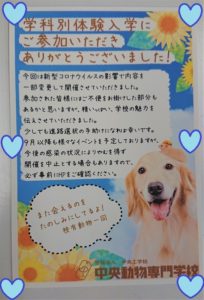 学科別体験入学に
ご参加いただき
ありがとうございました!
今回は新型コロナウイルスの影響で内容を
一部変更して開催させていただきました。
参加された皆様にはご不便をお掛けした部分も
あるかと思いますが、精いっぱい、学校の魅力を
伝えさせていただきました。
少しでも進路選択の手助けになれば幸いです。
9月以降も様々なイベントを予定しておりますが、
今後の感染の状況によりやむを得ず
開催を中止とする場合もありますので、
必ず事前にHPをご確認ください。
また会えるのを
たのしみにしてるよ!
校有動物一同
中央工学校
中央動物専門学校